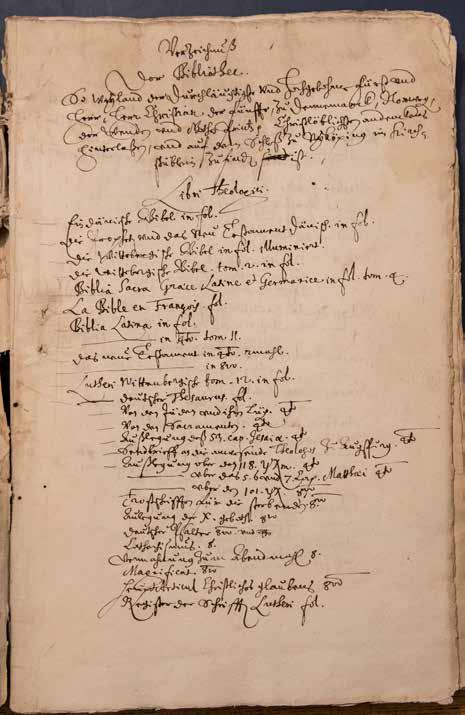 Verzeichnuß
Der Bibliothec.
So Weyland der Durchläuchtigste und Hochgebohrne Fürst und
Herr, Herr Christian der fünffte, zu Dennemarck, Norwey,
der Wenden und Gothen Printz, Christlöblichsten andenckens
hinterlaßen, und auf dem Schloß zu Nykiöping in Kirch
stüblein zu finden ist.
Libri Theologici.
Ein dänische Bibel in fol.
Die Propheten und das Neu Testament dänisch. in fol.
Die Wittebergische Bibel in fol. illuminiert.
Die Wittebergische Bibel. tom. 2. in fol.
Biblia Sacra Græce Latine et Germanice in fol. tom. 4.
La Bible en François. fol.
Biblia Latina in fol.
in 4to. tom. 11.
das neue Testament in 4to. 2 mahl.
in 8vo.
Lutheri Wittenbergische tom. 12. in fol.
deutscher Thesaurus fol.
Von den Jüden und ihren Lüg. 4to
Von den Sacramenten. 4to
Außlegung des cap. Jesaiæ. 4to
Sendbrieff an die Theologos zu Augspurg. 4to
Außlegung uber den 118. Psalm. 4to
uber das 5. 6 und 7 Cap. Matthæi 4to
uber den 101. Psal 8vo
Trostschrifften für die sterbenden 8vo
Außlegung der X. geboth. 8vo
deutscher Psalter 8vo.
Catechismus. 8.
Vermahnung zum Abendmahl 8.
Magnificat. 8vo
Heuptartikul Christliches glaubens 8vo
Register der Schrifften Lutheri fol.